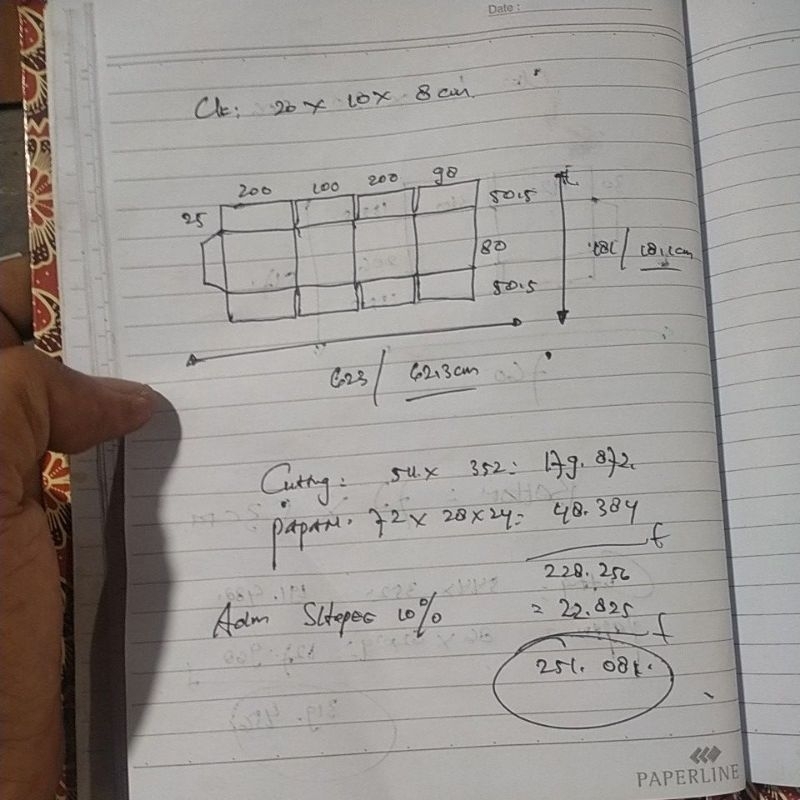 Date :
Uk: 20 x 10 x 8 cm.
200 100 200 98
25 50.5
80
50.5
181 / 18,1 cm
623 / 62.3 cm
Cutting: 511 x 352 = 179.872.
PAPAN. 72 x 28 x 24 = 48.384
228.256
= 22.825
251.081.
PAPERLINE